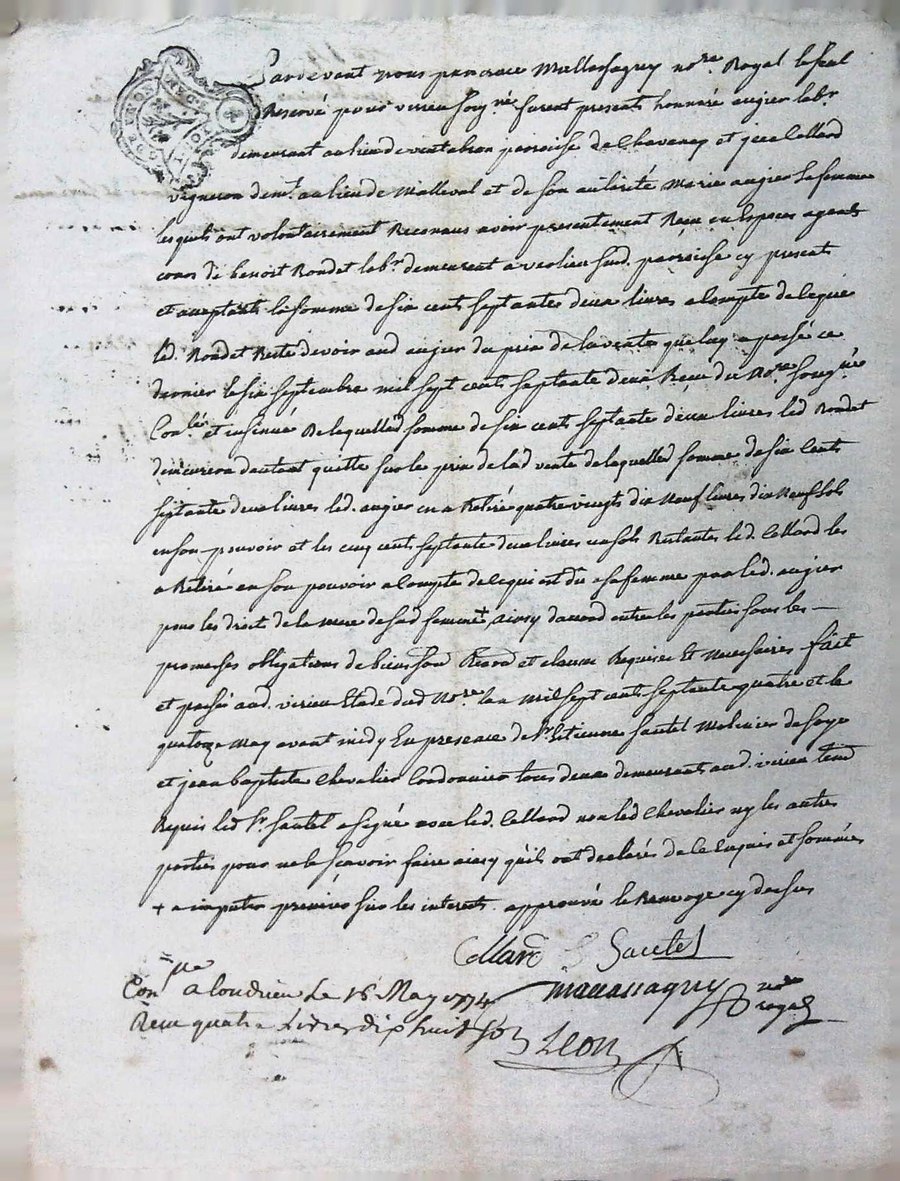 Pardevant nous pancrace Mallassagny no.re Royal le seal
Reservé pour verieu soug.né furent presents honnoré augier lab.r
demeurant au lieu de ventabran parroisse de Chavanay et jean Collard
vigneron dem.t au lieu de Malleval et de son autorité Marie augier sa femme
lesquels ont volontairement Reconnus avoir presentement Receu en Especes ayants
cours de benoist Rondet lab.r demeurent a verlieu sud. parroisse cy present
et acceptant la somme de six cent septante deux livres a Compte de ce que
led. Rondet Reste devoir aud augier du prix de la vente que luy a passé ce
dernier le six septembre mil sept cents septante deux Receu du No.re Soug.né
Con.lé et insinué De laquelled somme de six cents septante deux livres led Rondet
demeurera dautant quitte sur le prix de lad vente de laquelled somme de six Cents
septante deux livres led. augier en a Retiré quatre vingts dix Neuf livres dix Neuf sols
en son pouvoir et les cinq cent septante deux livres un sols Restantes led. Collard les
a Retiré en son pouvoir a Compte de ce qui est du a sa femme par led. augier
pour les droit de la mere de sad femme + ainsy daccord entre les parties sous les —
promesses obligations de biens soud Renon et clauses Requises Et Necessaires fait
et passé aud. verieu Etude dud No.re lan Mil sept cents septante quatre et le
quatorze May avant midy En presence de s.r Estienne Sautel Molinier de soye
et jean baptiste Chevalier Cordonnier tous deux demeurants aud. verieu temd
Requis led s.r Sautel a signé avec led. Collard non led Chevalier ny les autres
parties pour ne le scavoir faire ainsy qu'ils ont declarés de ce Enquis et sommés
+ a imputer premiere sur les interets. approuvé le Renvoye cy dessus
Collard Sautel
Mallassagny no.re royal
Con.lé a Condrieu Le 16 May 1774
Receu quatre Livres dix huit sols
Leon